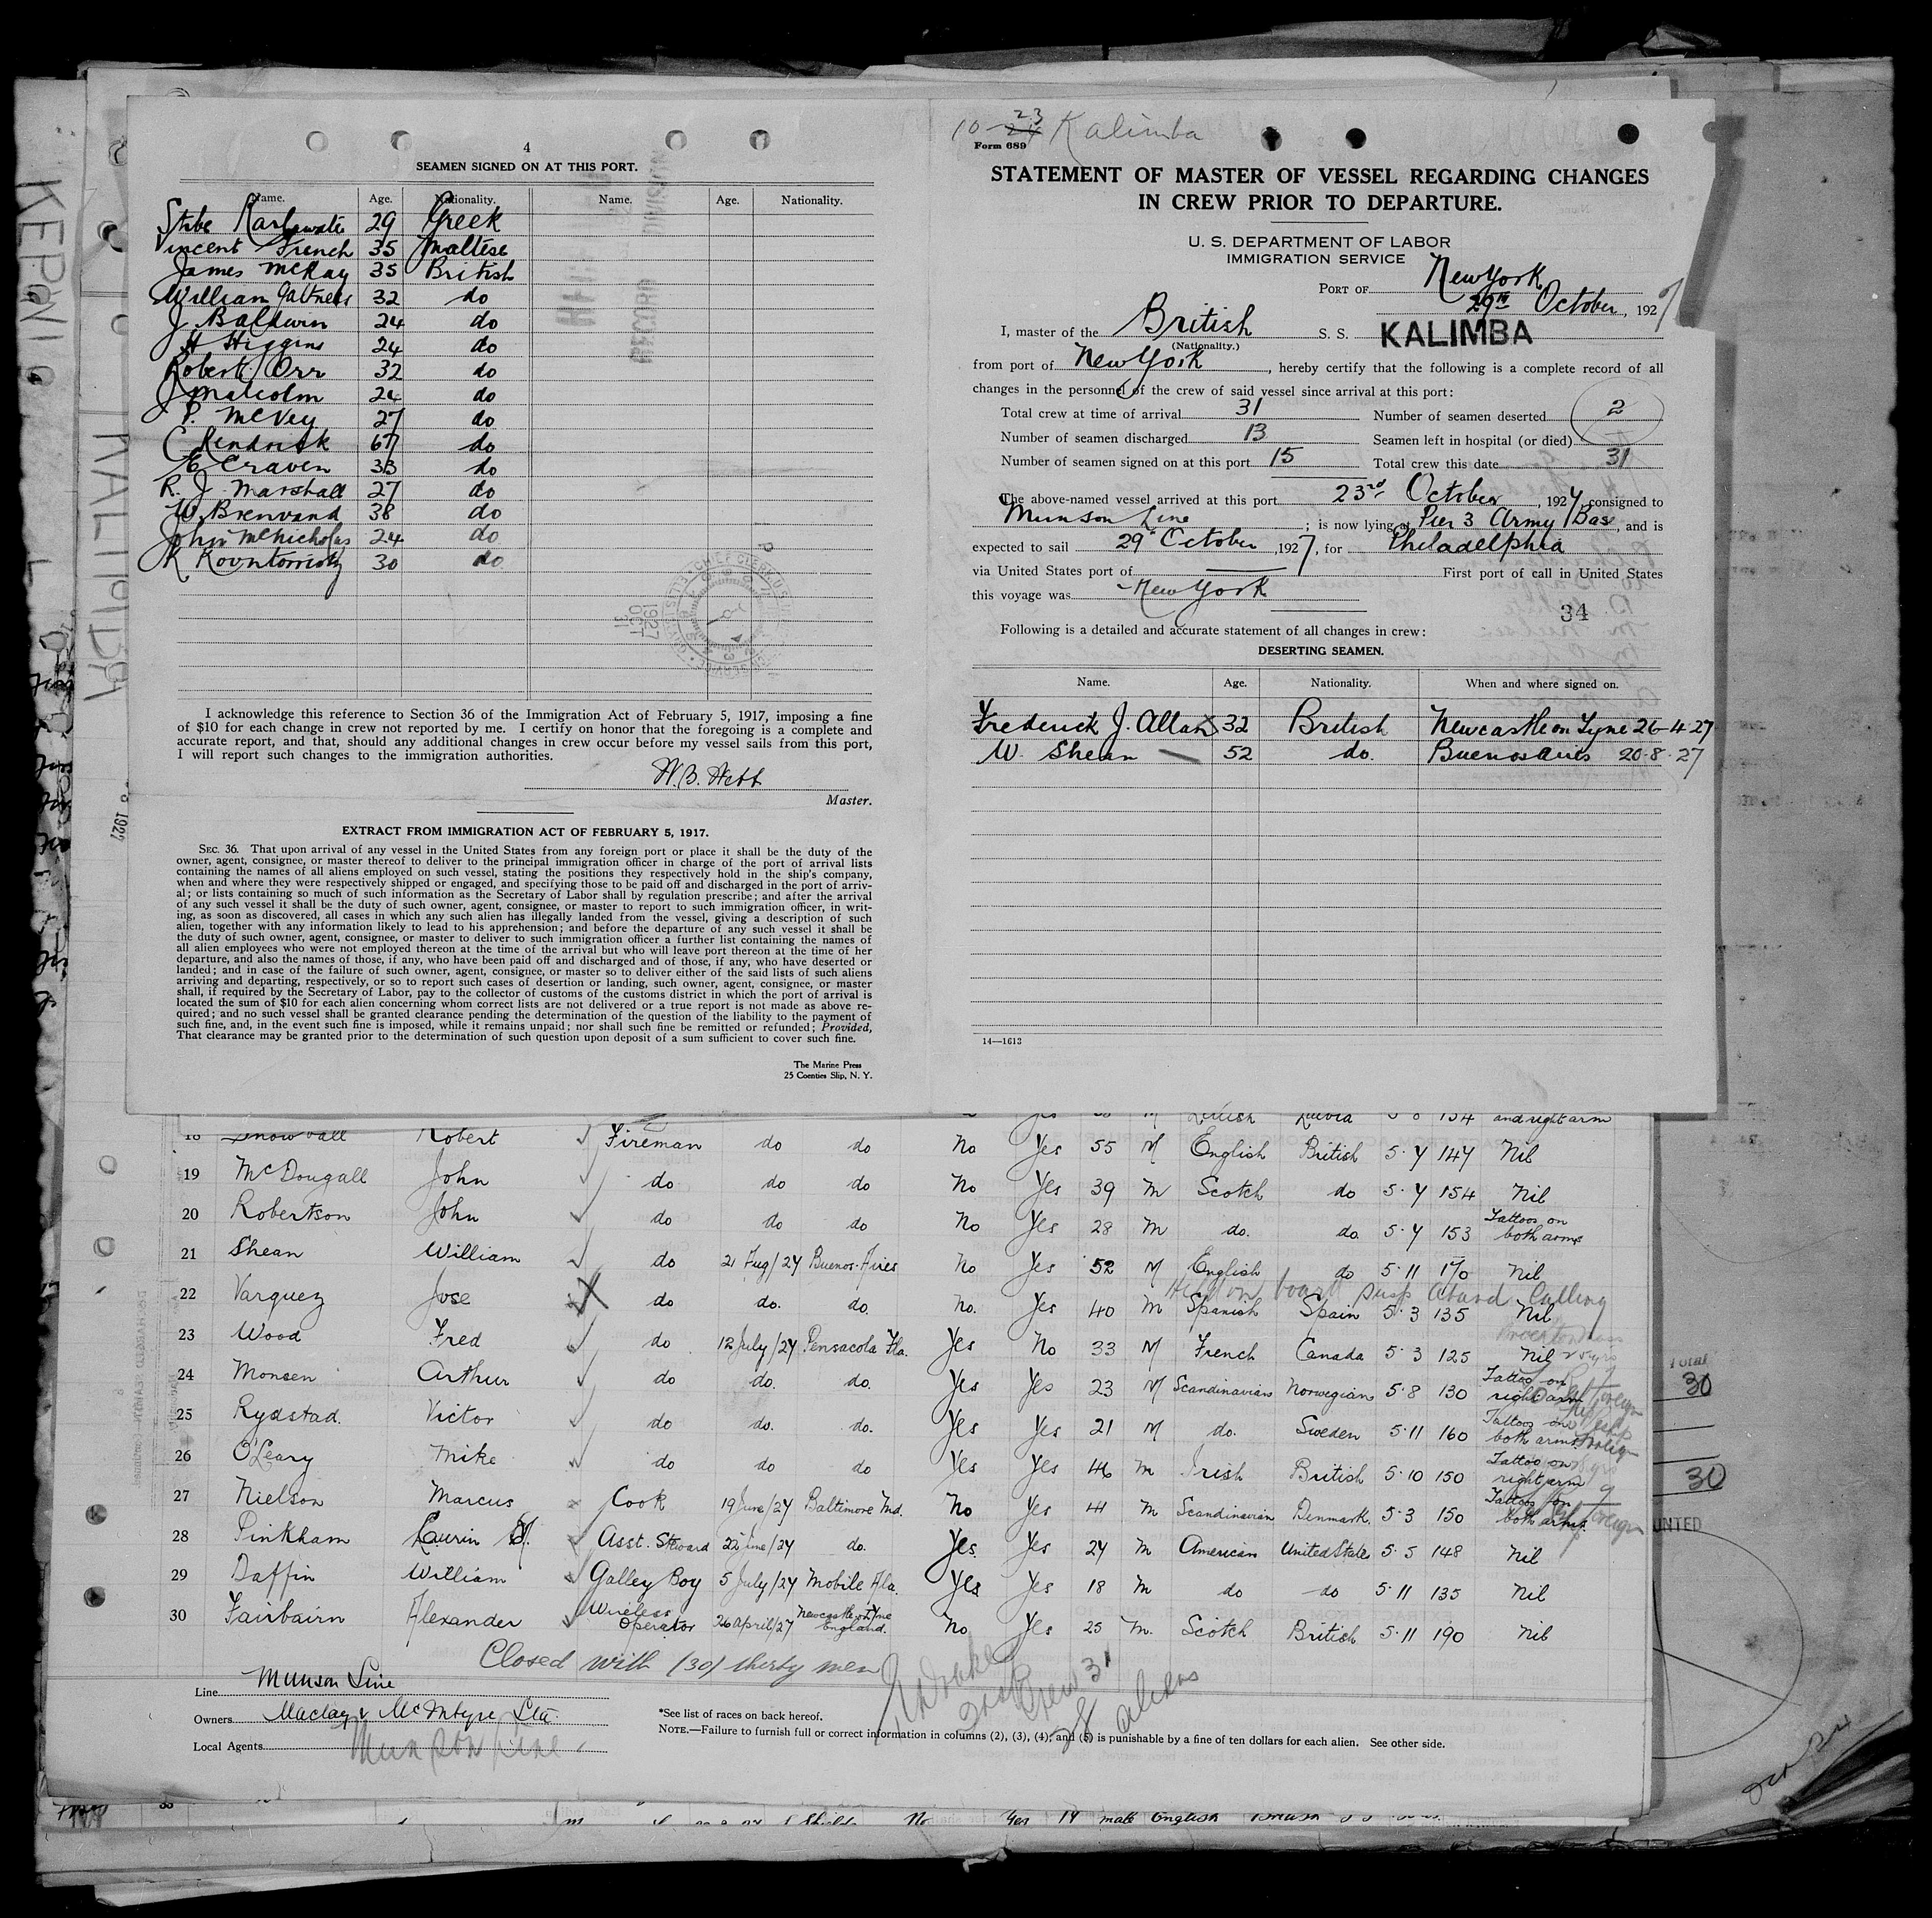 4
SEAMEN SIGNED ON AT THIS PORT.
Name. Age. Nationality. Name. Age. Nationality.
29 Greek
Vincent French 35 Maltese
James McKay 35 British
William 32 do
J Baldwin 24 do
H Higgins 24 do
Robert Orr 32 do
J Malcolm 24 do
P. McVey 27 do
C Kendrick 67 do
E Craven 33 do
R. J. Marshall 27 do
W. Brenvand 38 do
John McNicholas 24 do
K 30 do
1927
OCT
31
I acknowledge this reference to Section 36 of the Immigration Act of February 5, 1917, imposing a fine
of $10 for each change in crew not reported by me. I certify on honor that the foregoing is a complete and
accurate report, and that, should any additional changes in crew occur before my vessel sails from this port,
I will report such changes to the immigration authorities.
Master.
EXTRACT FROM IMMIGRATION ACT OF FEBRUARY 5, 1917.
SEC. 36. That upon arrival of any vessel in the United States from any foreign port or place it shall be the duty of the
owner, agent, consignee, or master thereof to deliver to the principal immigration officer in charge of the port of arrival lists
containing the names of all aliens employed on such vessel, stating the positions they respectively hold in the ship's company,
when and where they were respectively shipped or engaged, and specifying those to be paid off and discharged in the port of arriv-
al; or lists containing so much of such information as the Secretary of Labor shall by regulation prescribe; and after the arrival
of any such vessel it shall be the duty of such owner, agent, consignee, or master to report to such immigration officer, in writ-
ing, as soon as discovered, all cases in which any such alien has illegally landed from the vessel, giving a description of such
alien, together with any information likely to lead to his apprehension; and before the departure of any such vessel it shall be
the duty of such owner, agent, consignee, or master to deliver to such immigration officer a further list containing the names of
all alien employees who were not employed thereon at the time of the arrival but who will leave port thereon at the time of her
departure, and also the names of those, if any, who have been paid off and discharged and of those, if any, who have deserted or
landed; and in case of the failure of such owner, agent, consignee, or master so to deliver either of the said lists of such aliens
arriving and departing, respectively, or so to report such cases of desertion or landing, such owner, agent, consignee, or master
shall, if required by the Secretary of Labor, pay to the collector of customs of the customs district in which the port of arrival is
located the sum of $10 for each alien concerning whom correct lists are not delivered or a true report is not made as above re-
quired; and no such vessel shall be granted clearance pending the determination of the question of the liability to the payment of
such fine, and, in the event such fine is imposed, while it remains unpaid; nor shall such fine be remitted or refunded; Provided,
That clearance may be granted prior to the determination of such question upon deposit of a sum sufficient to cover such fine.
The Marine Press
25 Coenties Slip, N. Y.
10-23 Kalimba
Form 689
STATEMENT OF MASTER OF VESSEL REGARDING CHANGES
IN CREW PRIOR TO DEPARTURE.
U. S. DEPARTMENT OF LABOR
IMMIGRATION SERVICE
PORT OF New York
29th October, 1927
I, master of the British S. S. KALIMBA
(Nationality.)
from port of New York, hereby certify that the following is a complete record of all
changes in the personnel of the crew of said vessel since arrival at this port:
Total crew at time of arrival 31 Number of seamen deserted 2
Number of seamen discharged 13 Seamen left in hospital (or died)
Number of seamen signed on at this port 15 Total crew this date 31
The above-named vessel arrived at this port 23rd October, 1927 consigned to
Munson Line; is now lying at Pier 3 Army Base, and is
expected to sail 29th October, 1927, for Philadelphia
via United States port of First port of call in United States
this voyage was New York
34
Following is a detailed and accurate statement of all changes in crew:
DESERTING SEAMEN.
Name. Age. Nationality. When and where signed on.
Frederick J. Allan 32 British Newcastle on Tyne 26-4-27
W. Shean 52 do. Buenos Aires 20-8-27
14—1613
and right arm
18 Snowball Robert Fireman do do No Yes 55 M English British 5.7 147 Nil
19 McDougall John do do do No Yes 39 M Scotch do 5.7 154 Nil
20 Robertson John do do do No Yes 28 M do. do 5.7 153 Tattoos on both arms
21 Shean William do 21 Aug/27 Buenos-Aires No Yes 52 M English do 5.11 170 Nil
22 Varquez Jose do do. do No. Yes 40 M Spanish Spain 5.3 135 Nil
23 Wood Fred do 12 July/27 Pensacola Fla. Yes No 33 M French Canada 5.3 125 Nil
24 Monsen Arthur do do. do. Yes Yes 23 M Scandinavian Norwegian 5.8 130 Tattoo on right arm
25 Rydstad. Victor do do. do. Yes Yes 21 M do. Sweden 5.11 160 Tattoos on both arms
26 O'Leary Mike do do do Yes Yes 46 M Irish British 5.10 150 Tattoo on right arm
27 Nielson Marcus Cook 19 June/27 Baltimore Md. No Yes 41 M Scandinavian Denmark. 5.3 150 Tattoos on both arms.
28 Pinkham Laurin Asst. Steward 22 June/27 do. Yes Yes 27 M American United States 5.5 148 Nil
29 Daffin William Galley Boy 5 July/27 Mobile Ala. Yes Yes 18 M do do 5.11 135 Nil
30 Fairbairn Alexander Wireless Operator 26 April/27 Newcastle on Tyne England. No Yes 25 M. Scotch British 5.11 190 Nil
Closed with (30) thirty men
Crew 31
28 aliens
Line Munson Line
Owners Maclay & McIntyre Ltd.
Local Agents Munson Line
*See list of races on back hereof.
NOTE.—Failure to furnish full or correct information in columns (2), (3), (4), and (5) is punishable by a fine of ten dollars for each alien. See other side.
Total
30
30